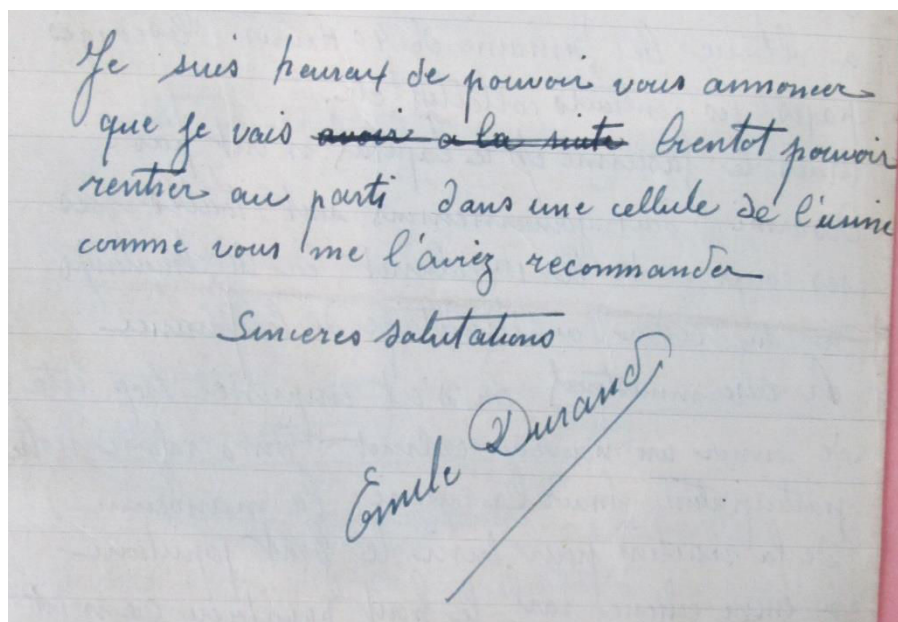 Je suis heureux de pouvoir vous annoncer
que je vais avoir a la suite bientot pouvoir
rentrer au parti dans une cellule de l'usine
comme vous me l'aviez recommander
Sinceres salutations
Emile Durand